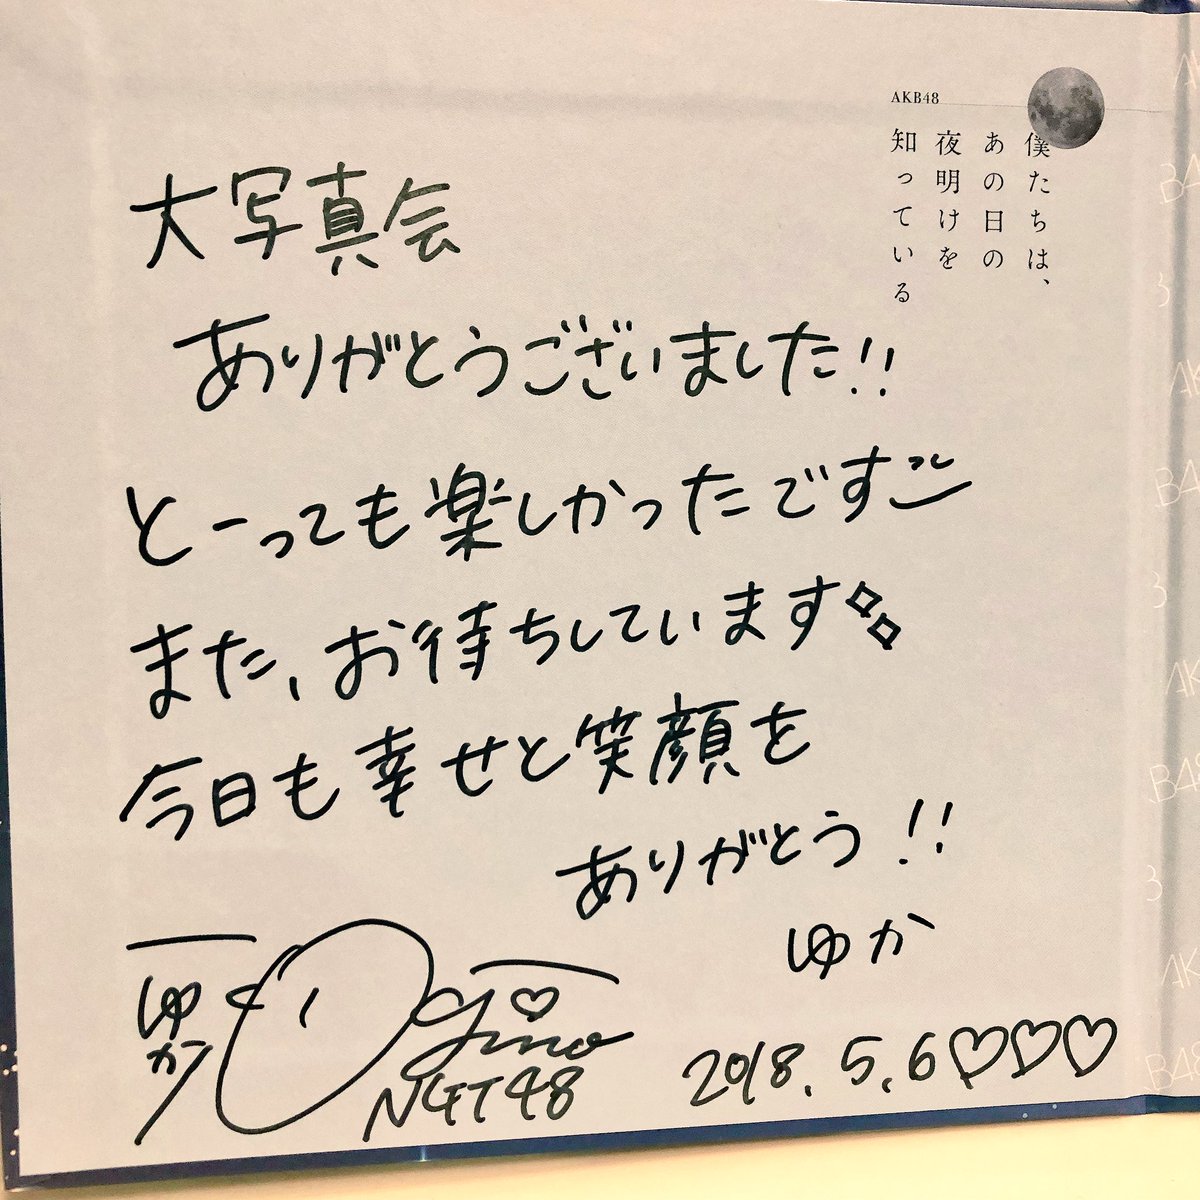 AKB48
僕たちは、
あの日の
夜明けを
知っている
大写真会
ありがとうございました!!
とーっても楽しかったです
また、お待ちしています
今日も幸せと笑顔を
ありがとう!!
ゆか
ゆか Ogino
NGT48
2018.5.6♡♡♡